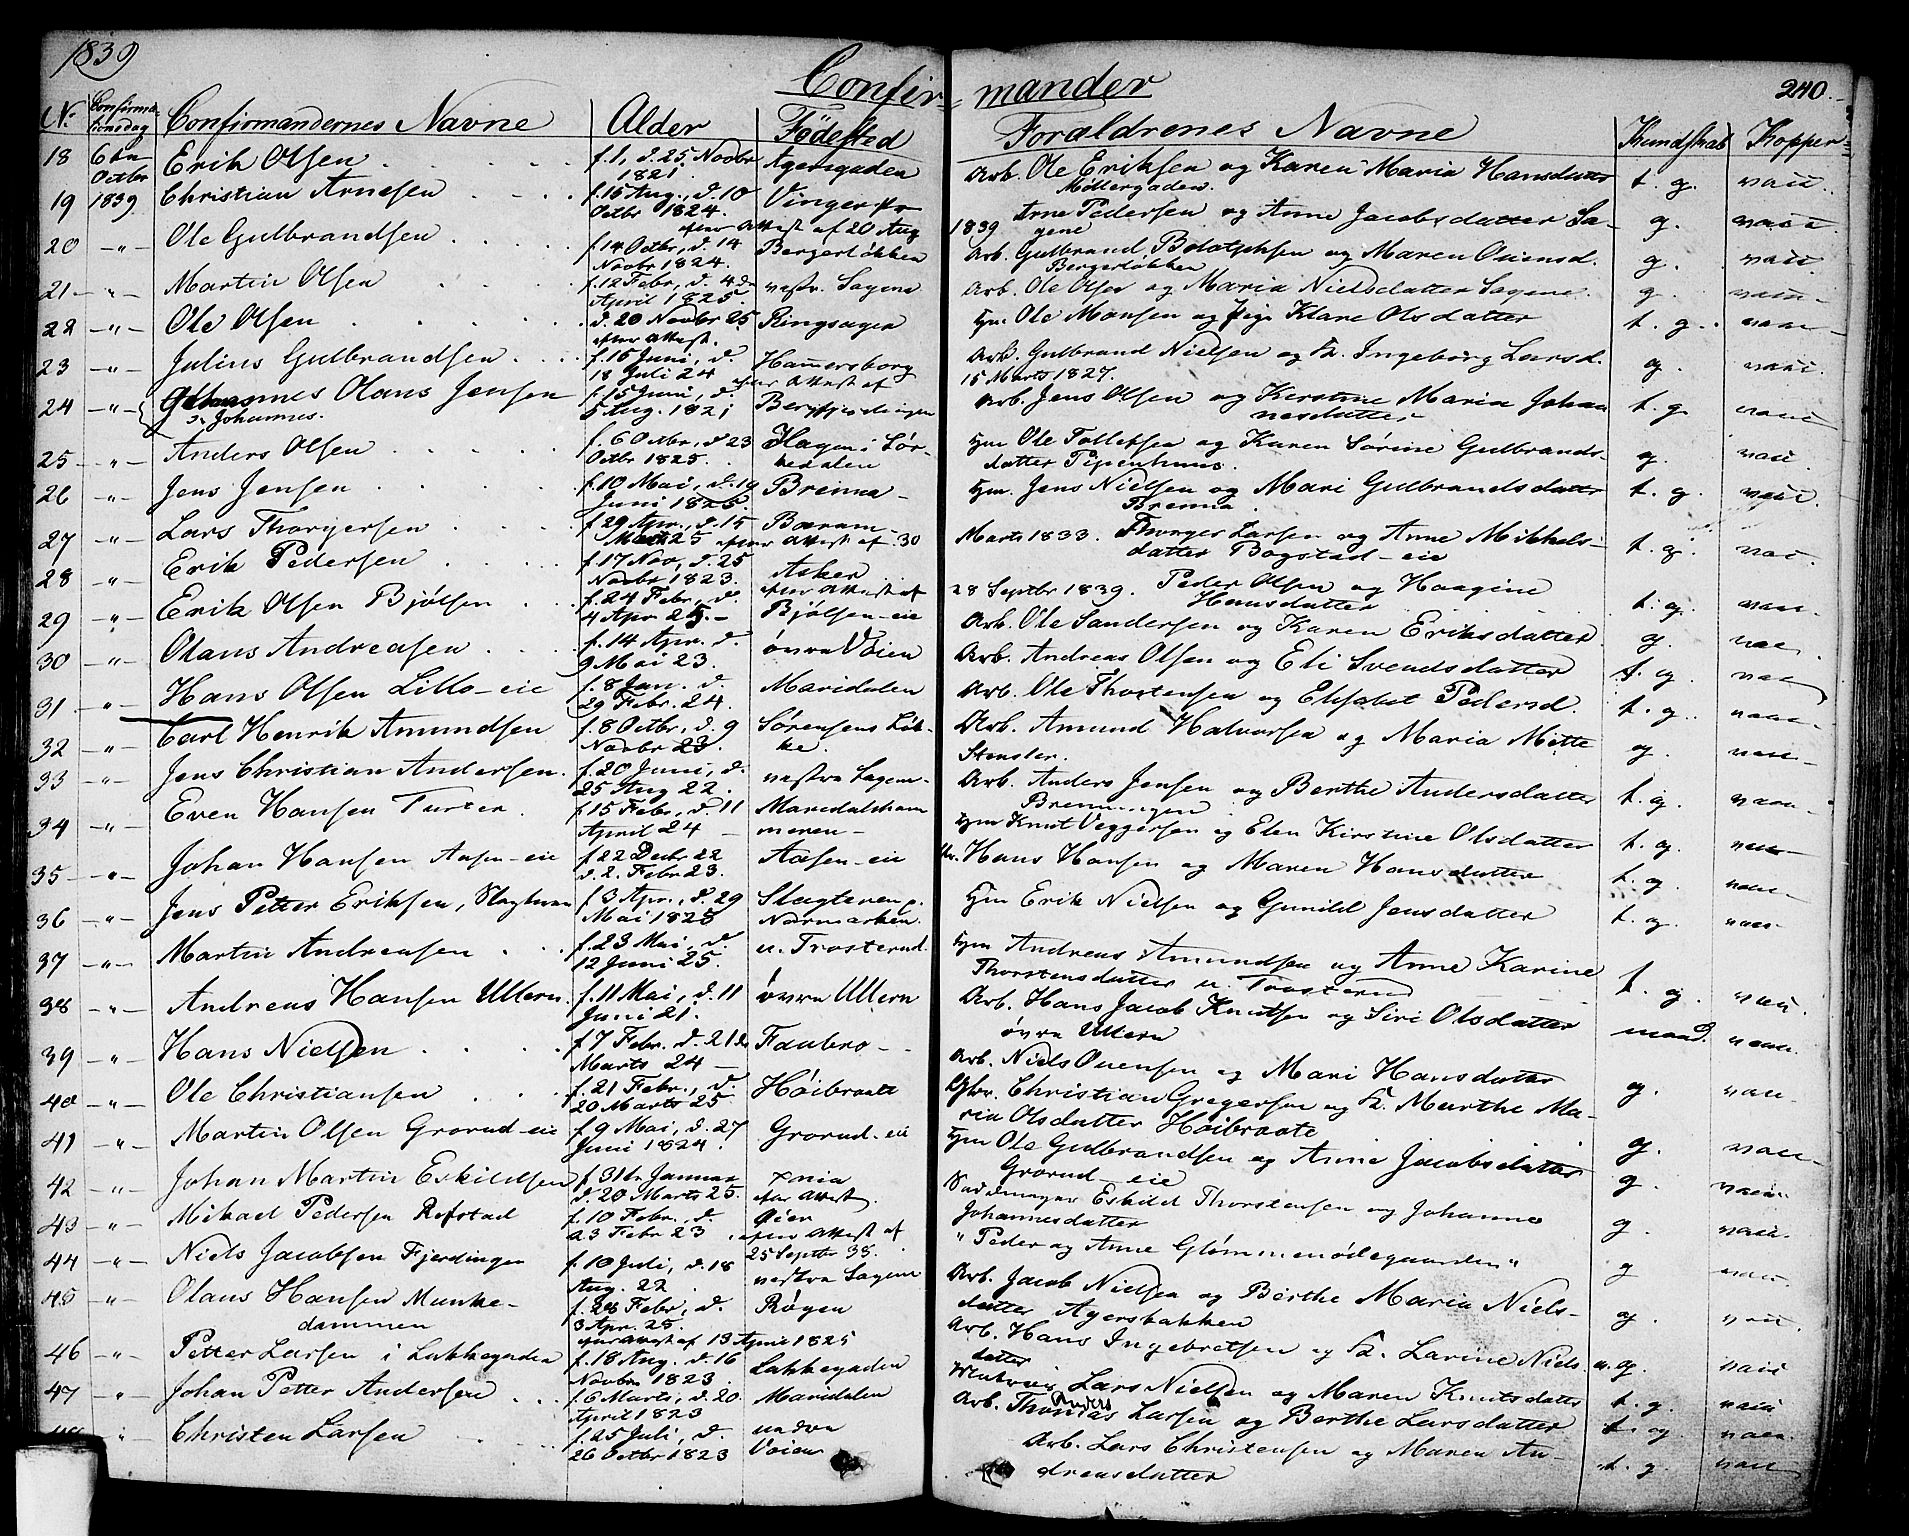 1839
Confir- mander
240.
N. Confirma-tionsdag Confirmandernes Navne Alder Fødested Foraldrenes Navne Kundskab Kopper
18 6te Octbr Erik Olsen f. 1, d. 25 Novbr 1821 Agersgaden Arb. Ole Eriksen og Karen Maria Hansdatter Møllergaden t. g. vacc.
19 1839 Christian Arnesen f. 16 Aug., d. 10 Octbr 1824. Vinger efter Attest af 20 Aug 1839 Arne Pedersen og Anne Jacobsdatter Sagene g. vacc.
20 -"- Ole Gulbrandsen f. 14 Octbr, d. 14 Novbr 1824. Bergerløkken Arb. Gulbrand og Maren Ouensd. Bergerløkken g. vacc.
21 -"- Martin Olsen f. 12 Febr, d. 4de April 1825. vestr. Sagene Arb. Ole Olsen og Maria Nielsdatter Sagene. g. vacc.
22 -"- Ole Olsen d. 20 Novbr 25 efter Attest. Ringsager Hm. Ole Monsen og Pige Klare Olsdatter t. g. vacc.
23 -"- Julius Gulbrandsen f. 16 Juni, d. 18 Juli 24 Hammersborg efter Attest af 15 Marts 1827. Arb. Gulbrand Nielsen og K. Ingeborg Larsd. g. vacc.
24 -"- Olaus Jensen Johannes. f. 15 Juni, d. 5 Aug. 1821 Bergfjerdingen Arb. Jens Olsen og Kirstine Maria Johannesdatter t. g. vacc.
25 -"- Anders Olsen f. 6 Octbr, d. 23 Octbr 1825. Hagen i Sørkedalen Hm. Ole Tollefsen og Karen Sørine Gulbrandsdatter Pipenhuus. g. vacc.
26 -"- Jens Jensen f. 10 Mai, d. 19 Juni 1825. Brenna Hm. Jens Nielsen og Mari Gulbrandsdatter Brenna t. g. vacc.
27 -"- Lars Thorgersen f. 29 Apr., d. 15 Mai 25 Bærum efter Attest af 30 Marts 1833. Thorger Larsen og Anne Mikkelsdatter Bogstad-eie t. g. vacc.
28 -"- Erik Pedersen f. 17 Nov, d. 25 Novbr 1823. Asker efter Attest af 28 Septbr 1839. Peder Olsen og Haagine Hansdatter t. g. vacc.
29 -"- Erik Olsen Bjølsen f. 24 Febr, d. 4 Apr 25. Bjølsen-eie Arb. Ole Sandersen og Karen Eriksdatter g. vacc.
30 -"- Olaus Andreasen f. 14 Apr. d. 9 Mai 23. øvre Voien Arb. Andreas Olsen og Eli Svendsdatter t. g. vacc.
31 -"- Hans Olsen Lillo-eie f. 8 Jan. d. 29 Febr. 24. Maridalen Arb. Ole Thorstensen og Elisabet Pedersd. t. g. vacc.
32 -"- Carl Henrik Amundsen f. 8 Octbr, d. 9 Novbr 23. Sørensens Løkke. Arb. Amund Halvorsen og Maria Mette Stensler. g. vacc.
33 -"- Jens Christian Andersen. f. 20 Juni, d. 25 Aug 22. vestre Sagene Arb. Anders Jensen og Berthe Andersdatter Brenningen t. g. vacc.
34 -"- Even Hansen Turter f. 15 Febr, d. 11 April 24 Maredalshammeren Hm Knut Veggersen og Elen Kirstine Olsdatter t. g. vacc.
35 -"- Johan Hansen Aasen-eie f. 22 Decbr 22 d. 2. Febr 23. Aasen-eie Hans Hansen og Maren Hansdatter t. g. vacc.
36 -"- Jens Petter Eriksen, Slagteren f. 3 Apr., d. 29 Mai 1825 Slagteren p. Normarken Hm Erik Nielsen og Gunild Jensdatter t. g. vacc.
37 -"- Martin Andreasen f. 23 Mai, d. 12 Juni 25. n. Trosterud. Hm Andreas Amundsen og Anne Karine Thorstensdatter n. Trosterud t. g. vacc.
38 -"- Andreas Hansen Ullern. f. 11 Mai, d. 11 Juni 21. øvre Ullern Arb. Hans Jacob Knutsen og Siri Olsdatter øvre Ullern maad. vacc.
39 -"- Hans Nielsen f. 7 Febr. d. 21de Marts 24 Faabro Arb. Niels Ouensen og Mari Hansdatter g. vacc.
40 -"- Ole Christiansen f. 21 Febr., d. 20 Marts 25 Høibraate Christian Gregersen og K. Marthe Maria Olsdatter Høibraate g. vacc.
41 -"- Martin Olsen Grorud-eie f. 9 Mai, d. 27 Juni 1824. Grorud-eie Hm Ole Gulbrandsen og Anne Jacobsdatter Grorud-eie g. vacc.
42 -"- Johan Martin Eskildsen f. 31te Januar d. 20 Marts 25. Xnia efter Attest. Sadelmager Eskild Thorstensen og Johanne Johannesdatter g. vacc.
43 -"- Mikael Pedersen Refstad f. 10 Febr. d. 23 Febr 23 Øier efter Attest af 25 Septbr 38. "Peder og Anne Glømmenødegaarden" g vacc.
44 -"- Niels Jacobsen Fjerdingen f. 10 Juli, d. 18 Aug. 22. vestre Sagene Arb. Jacob Nielsen og Berthe Maria Nielsdatter Agersbakken g vacc.
45 -"- Olaus Hansen Munkedammen f. 28 Febr, d. 3 Apr. 25. efter Attest af 13 April 1825 Røgen Arb. Hans Ingebretsen og K. Larine Nielsdatter g. vacc.
46 -"- Petter Larsen i Lakkegaden f. 18 Aug. d. 16 Novbr 1823. Lakkegaden Lars Nielsen og Maren Knutsdatter t. g. vacc.
47 -"- Johan Petter Andersen f. 6 Marts, d. 20 April 1823 Maridalen Arb. Anders Larsen og Berthe Larsdatter t. g. vacc.
Christen Larsen f. 25 Juli, d. 26 Octbr 1823 nedre Voien Arb. Lars Christensen og Maren Andreasdatter t. g. vacc